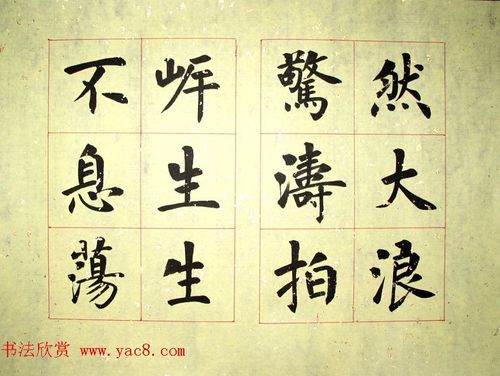 然大浪
驚濤拍
岸生生
不息蕩
书法欣赏 www.yac8.com